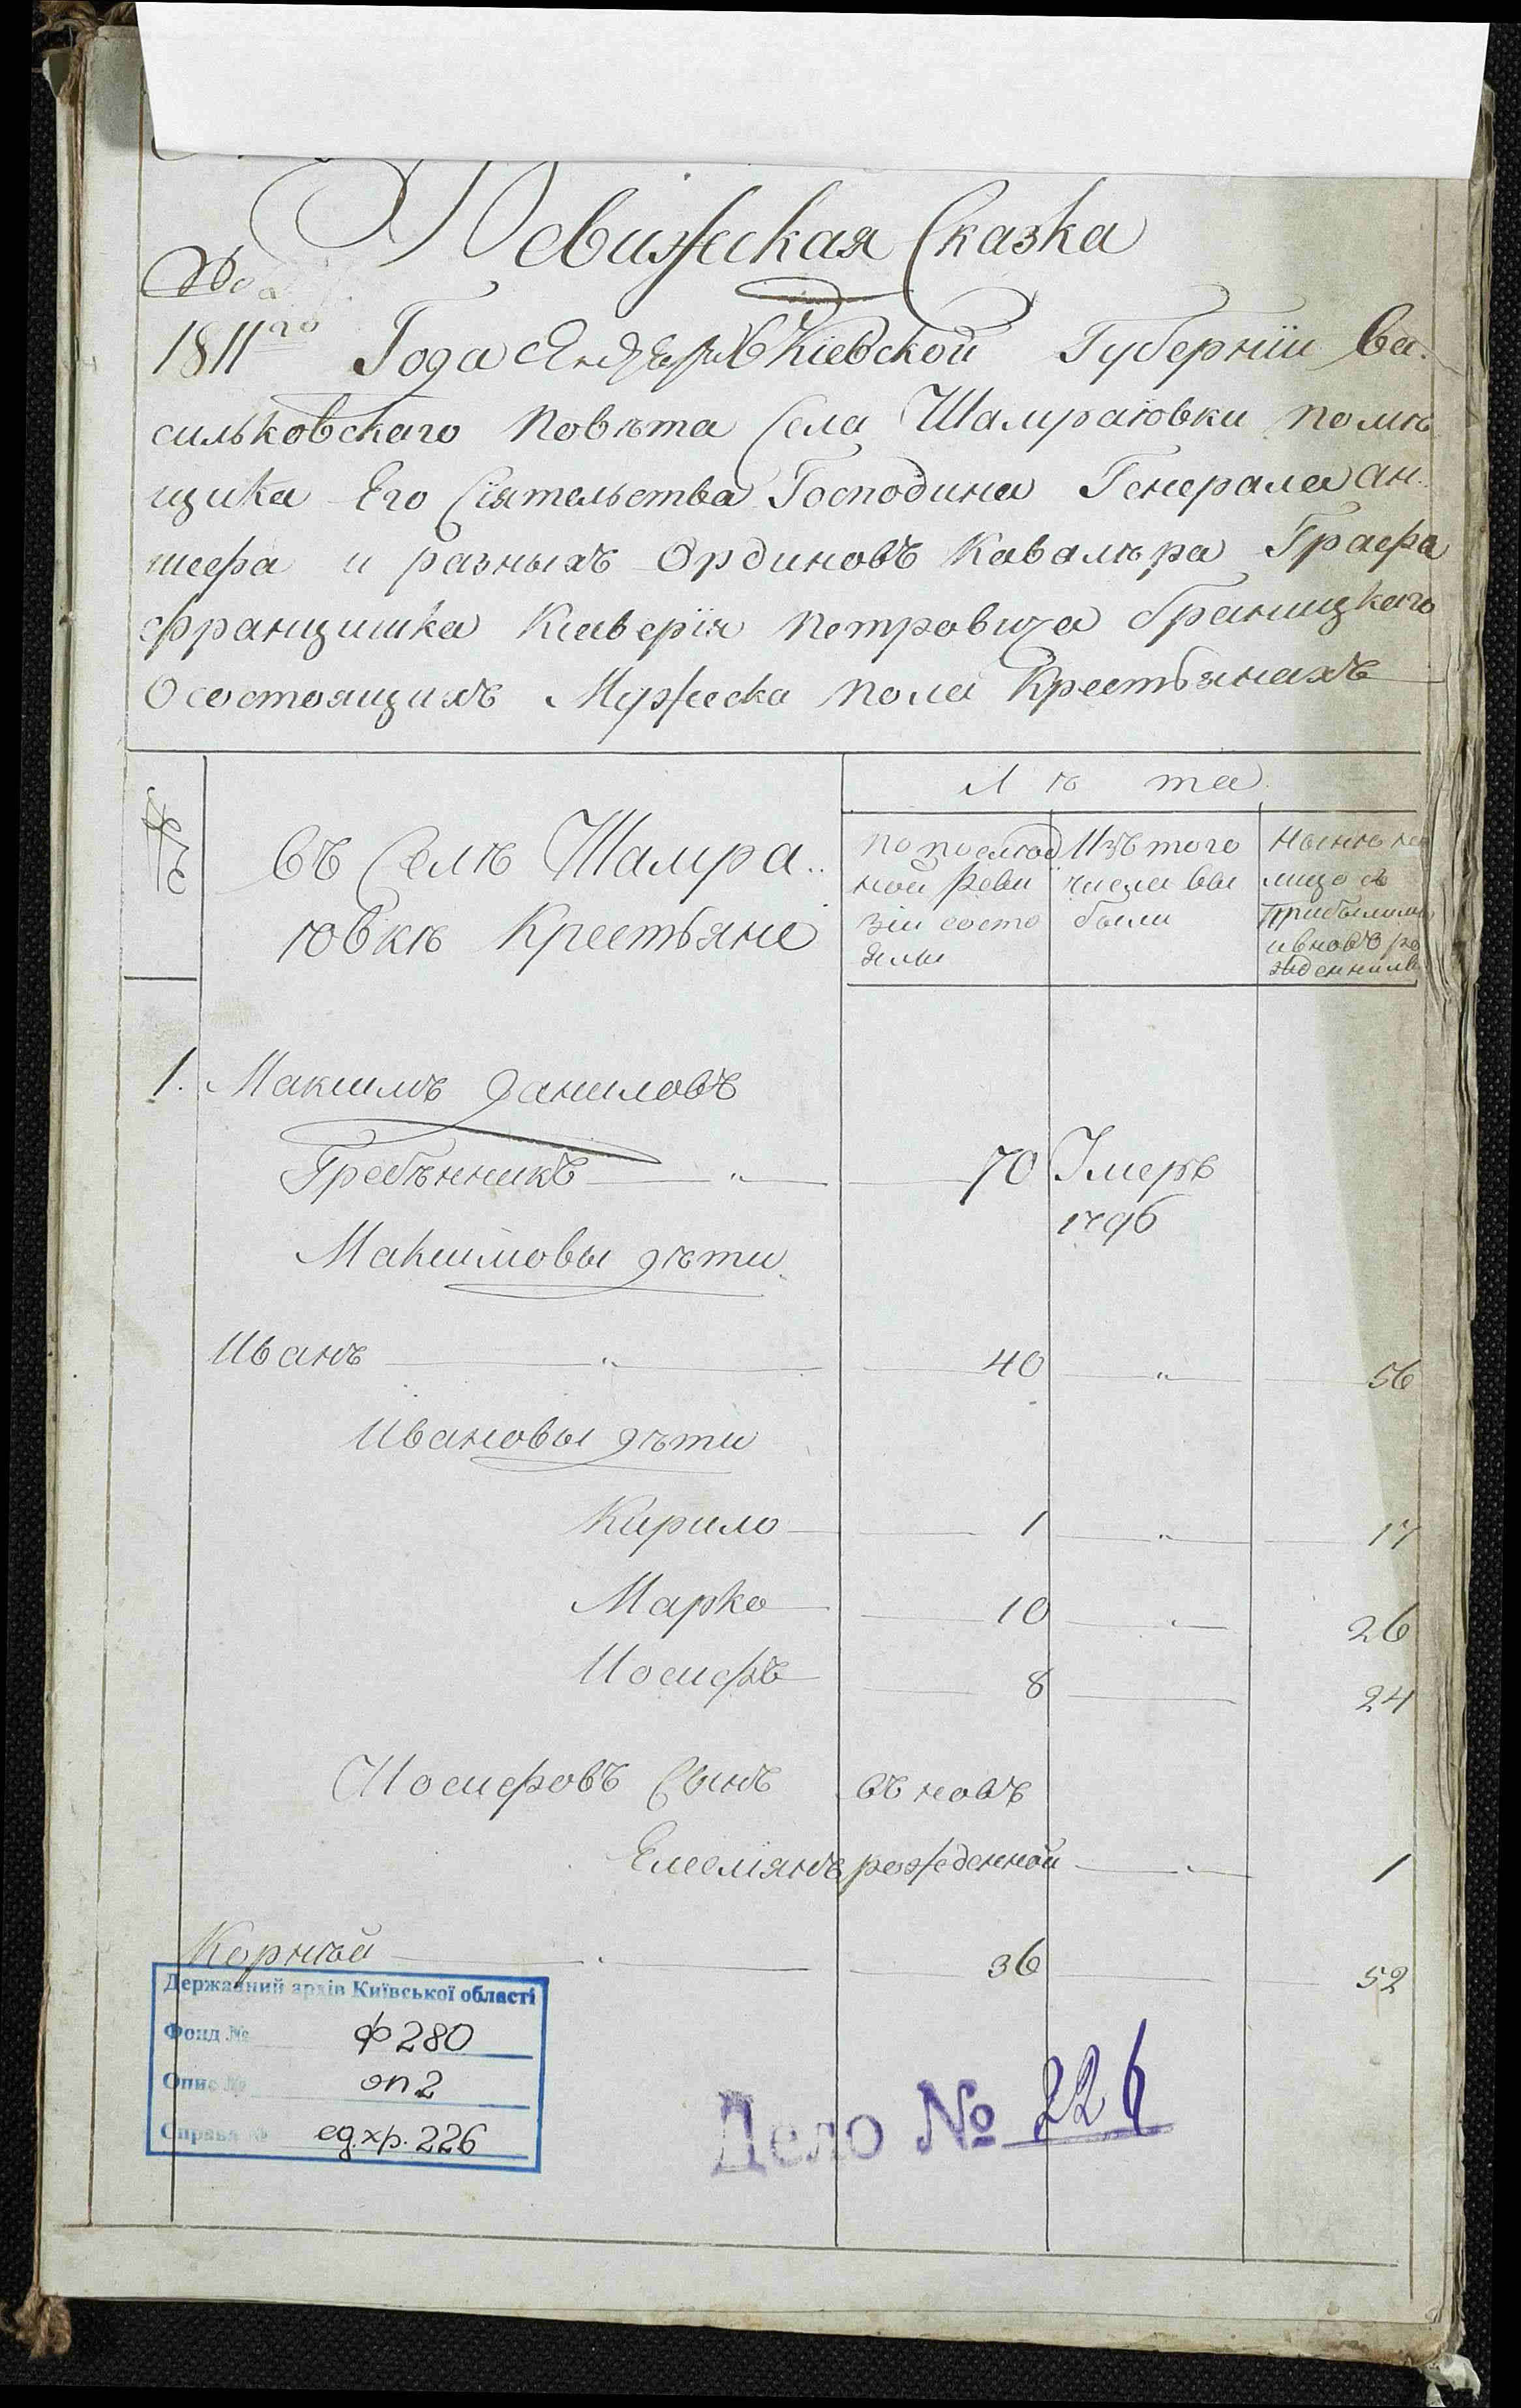 Ревижская Сказка
1811го Года Киевской Губернїи Ва.
сильковскаго Повѣта Села Шамраювки помѣ
щика Его Сїятельства Господина Генерала ан.
шефа и разныхъ Ординовъ Кавалѣра Графа
Францишка Ксаверїя Петровича Браницкаго
О состоящихъ Мужеска пола Крестьянахъ
Лѣта
Въ Селѣ Шамра..
ювкѣ Крестьяне
По послѣд
ной реви
зїи состо
яли
Изъ того
числа вы
были
Нынѣ на
лицо съ
Прибылыми
и вновъ ро
жденними
1. Максимъ Даниловъ
Гребѣнникъ 70 Умеръ
1796
Максимовы дѣти
Иванъ 40 56
Ивановы дѣти
Кирило 1 17
Марко 10 26
Иосифъ 8 24
Иосифовъ Сынъ въновъ
Емелїянъ рожденной 1
Корнѣй 36 52
Державний архів Київської області
Фонд № ф 280
Опис № оп 2
Справа № ед.хр. 226
Дело № 226